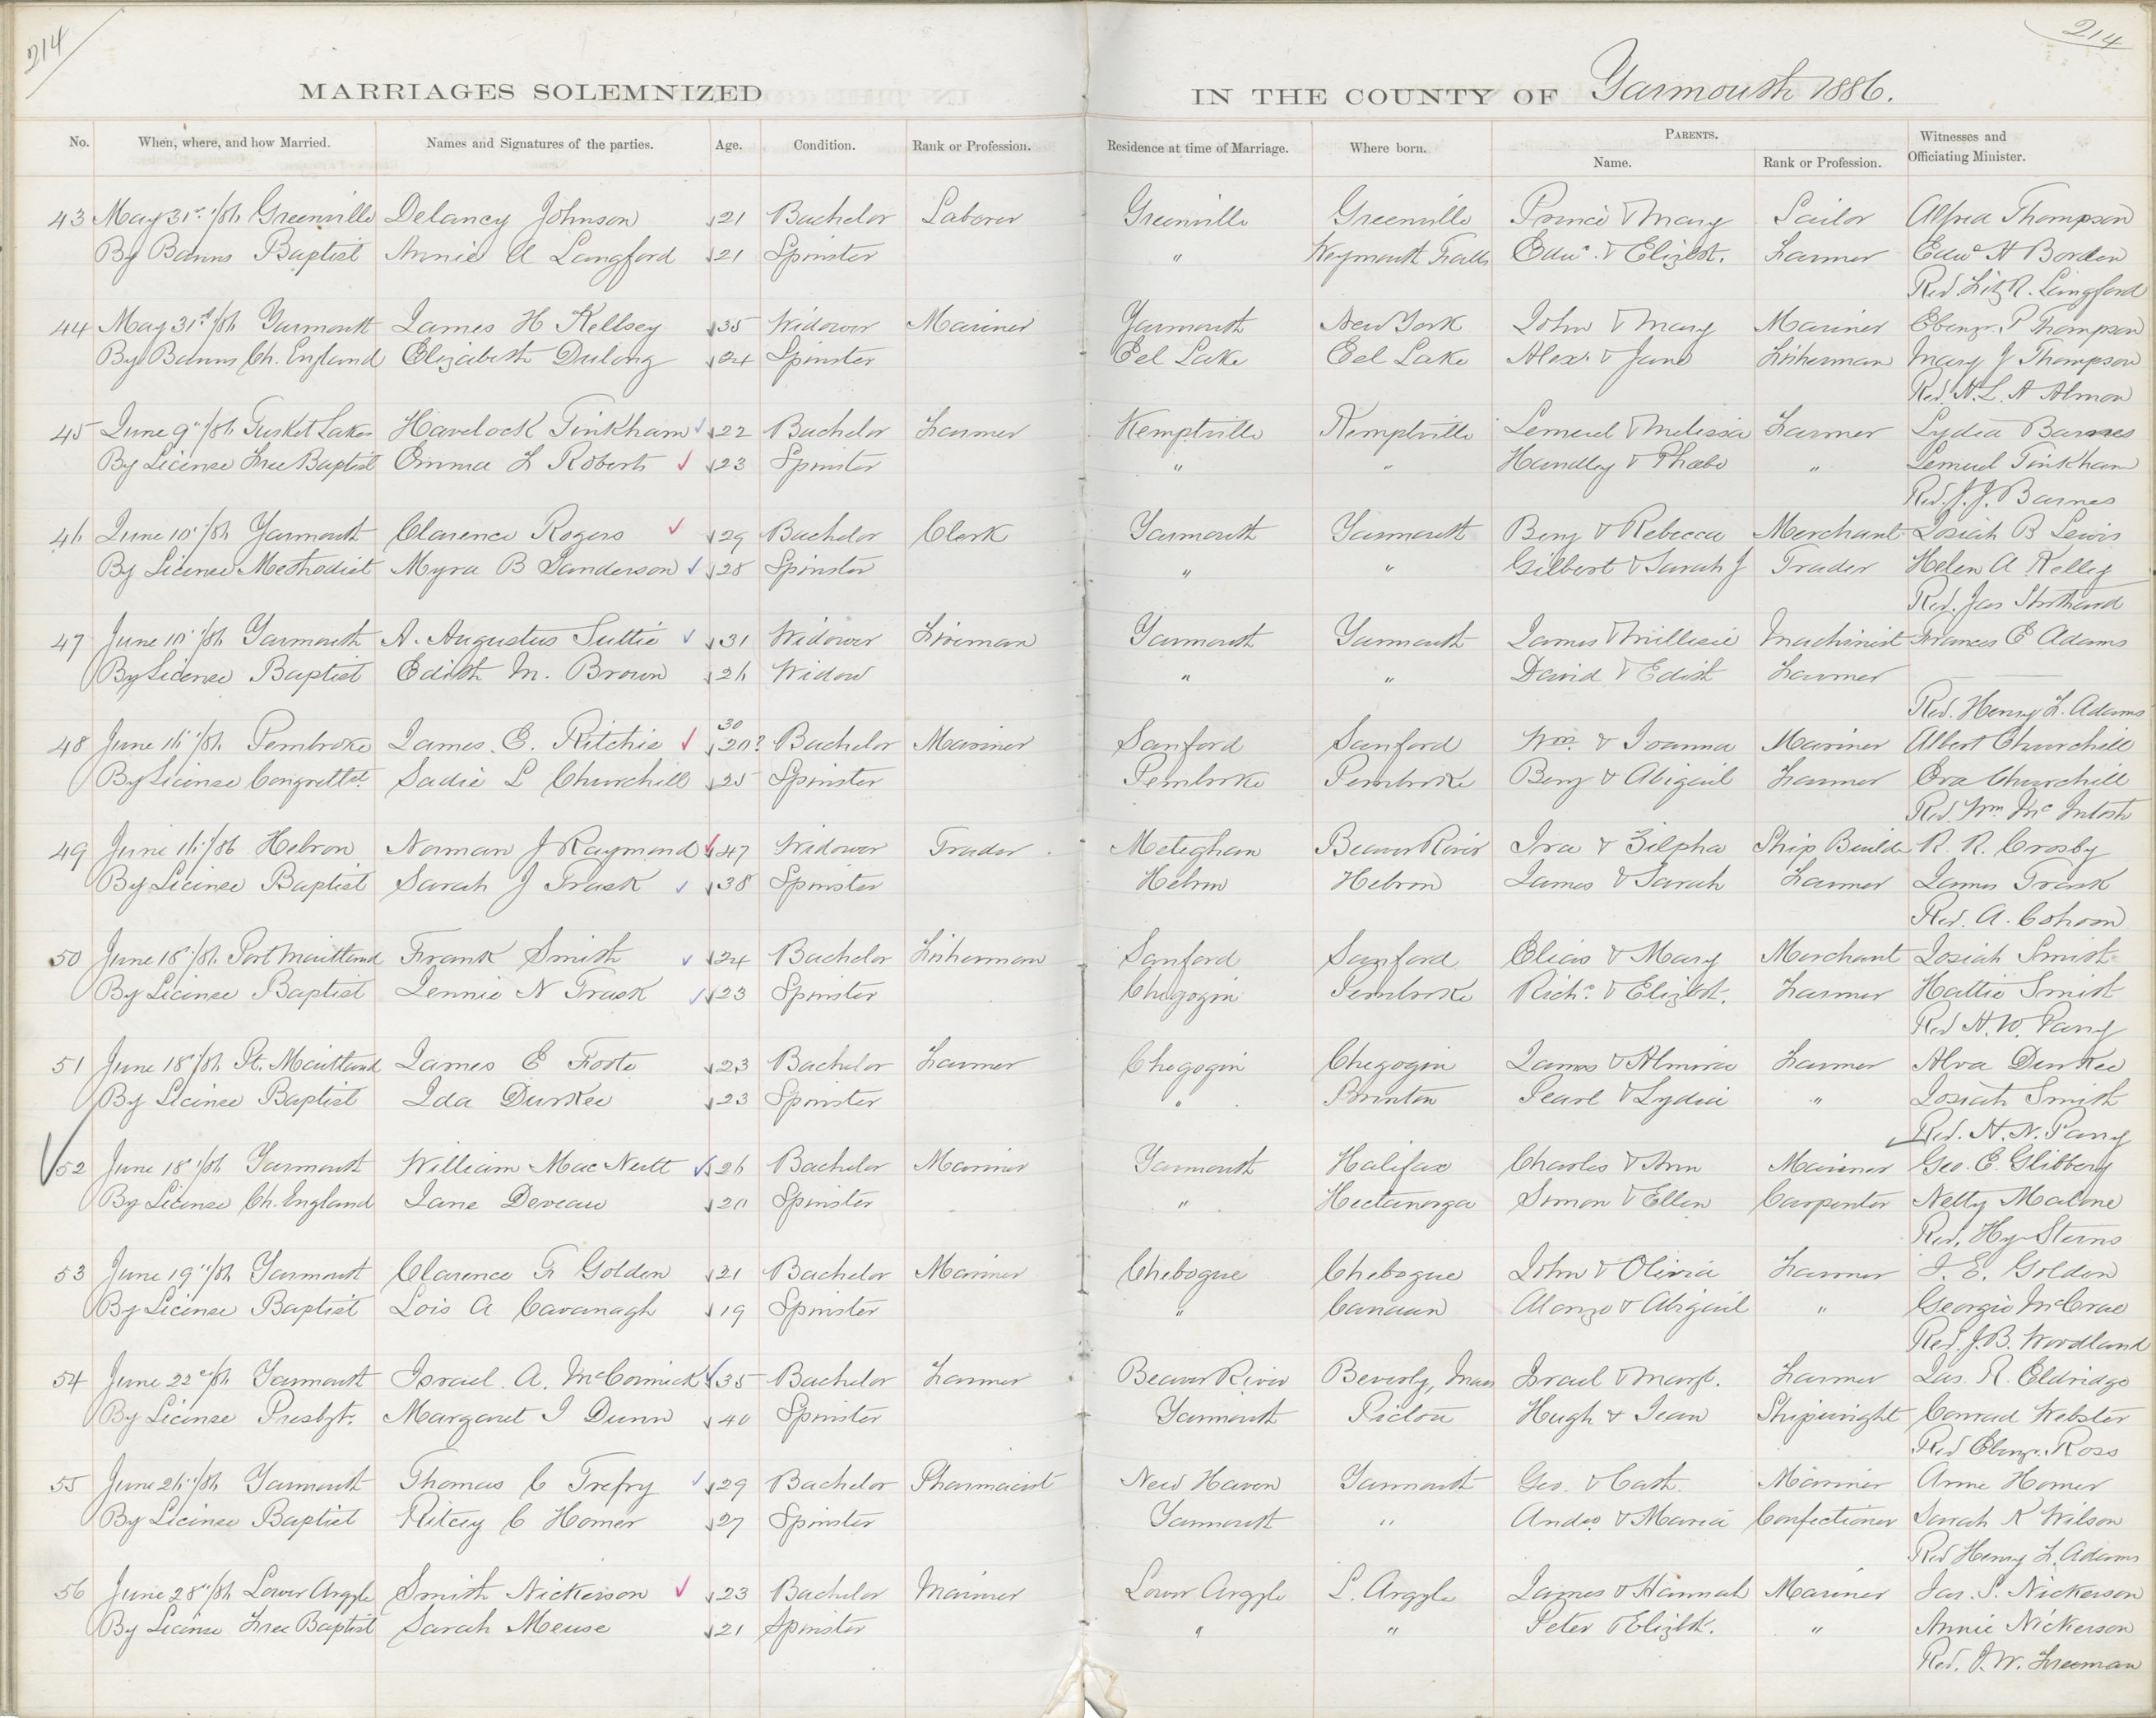 214
214
MARRIAGES SOLEMNIZED IN THE COUNTY OF Yarmouth 1886.
No. When, where, and how Married. Names and Signatures of the parties. Age. Condition. Rank or Profession. Residence at time of Marriage. Where born. PARENTS. Name. Rank or Profession. Witnesses and Officiating Minister.
43 May 31st /86 Greenville Delancy Johnson 21 Bachelor Laborer Greenville Greenville Prince & Mary Sailor Alfred Thompson
By Banns Baptist Annie A Langford 21 Spinster " Weymouth Falls Edwd. & Elizbt. Farmer Edwd H Borden
Rev. Fitz R. Langford
44 May 31st /86 Yarmouth James H Kellsey 35 Widower Mariner Yarmouth New York John & Mary Mariner Ebenzr. P Thompson
By Banns Ch. England Elizabeth Dulong 24 Spinster Eel Lake Eel Lake Alex. & Jane Fisherman Mary J Thompson
Rev. H. L. A Almon
45 June 9" /86 Tusket Lakes Havelock Tinkham 22 Bachelor Farmer Kemptville Kemptville Lemuel & Melissa Farmer Lydia Barnes
By License Free Baptist Emma F Roberts 23 Spinster " " Handley & Phoebe " Lemuel Tinkham
Rev. J. J. Barnes
46 June 10" /86 Yarmouth Clarence Rogers 29 Bachelor Clerk Yarmouth Yarmouth Benj & Rebecca Merchant Josiah B Lewis
By License Methodist Myra B Sanderson 28 Spinster " " Gilbert & Sarah J Trader Helen A Kelley
Rev. Jas Strothard
47 June 10" /86 Yarmouth A. Augustus Suttie 31 Widower Fireman Yarmouth Yarmouth James & Millisie Machinist Frances E Adams
By License Baptist Edith M. Brown 26 Widow " " David & Edith Farmer
Rev. Henry F. Adams
30
48 June 16" /86 Pembroke James. E. Ritchie 20? Bachelor Mariner Sanford Sanford Wm. & Joanna Mariner Albert Churchill
By License Congrettl. Sadie L Churchill 25 Spinster Pembroke Pembroke Benj & Abigail Farmer Eva Churchill
Rev. Wm McIntosh
49 June 16" /86 Hebron Norman J Raymond 47 Widower Trader Meteghan Beaver River Ira & Zilpha Ship Builder R. R. Crosby
By License Baptist Sarah J Trask 38 Spinster Hebron Hebron James & Sarah Farmer James Trask
Rev. A. Cohoon
50 June 18" /86 Port Maitland Frank Smith 24 Bachelor Fisherman Sanford Sanford Elias & Mary Merchant Josiah Smith
By License Baptist Jennie N Trask 23 Spinster Chegogin Pembroke Richd. & Elizbt. Farmer Hattie Smith
Rev H. N. Parry
51 June 18" /86 Pt. Maitland James E Foote 23 Bachelor Farmer Chegogin Chegogin James & Almira Farmer Alva Durkee
By License Baptist Ida Durkee 23 Spinster " Brinton Pearl & Lydia " Josiah Smith
Rev. H. N. Parry
52 June 18" /86 Yarmouth William MacNutt 26 Bachelor Mariner Yarmouth Halifax Charles & Ann Mariner Geo. E. Glibbery
By License Ch. England Jane Deveau 20 Spinster " Hectanorga Simon & Ellen Carpenter Netty Malone
Rev. Hy Sterns
53 June 19" /86 Yarmouth Clarence F Golden 21 Bachelor Mariner Chebogue Chebogue John & Olivia Farmer J. E. Golden
By License Baptist Lois A Cavanagh 19 Spinster " Canaan Alonzo & Abigail " Georgie McCrae
Rev. J. B. Woodland
54 June 22" /86 Yarmouth Israel. A. McCormick 35 Bachelor Farmer Beaver River Beverly, Mass Israel & Margt. Farmer Jas. R. Eldridge
By License Presbyt. Margaret I Dunn 40 Spinster Yarmouth Pictou Hugh & Jean Shipwright Conrad Webster
Rev Ebenzr. Ross
55 June 26" /86 Yarmouth Thomas C Trefry 29 Bachelor Pharmacist New Haven Yarmouth Geo. & Cath. Mariner Anne Homer
By License Baptist Ritcey C Homer 27 Spinster Yarmouth " Andw. & Maria Confectioner Sarah K Wilson
Rev Henry F. Adams
56 June 28" /86 Lower Argyle Smith Nickerson 23 Bachelor Mariner Lower Argyle L. Argyle James & Hannah Mariner Jas. S. Nickerson
By License Free Baptist Sarah Meuse 21 Spinster " " Peter & Elizbt. " Annie Nickerson
Rev. J. W. Freeman